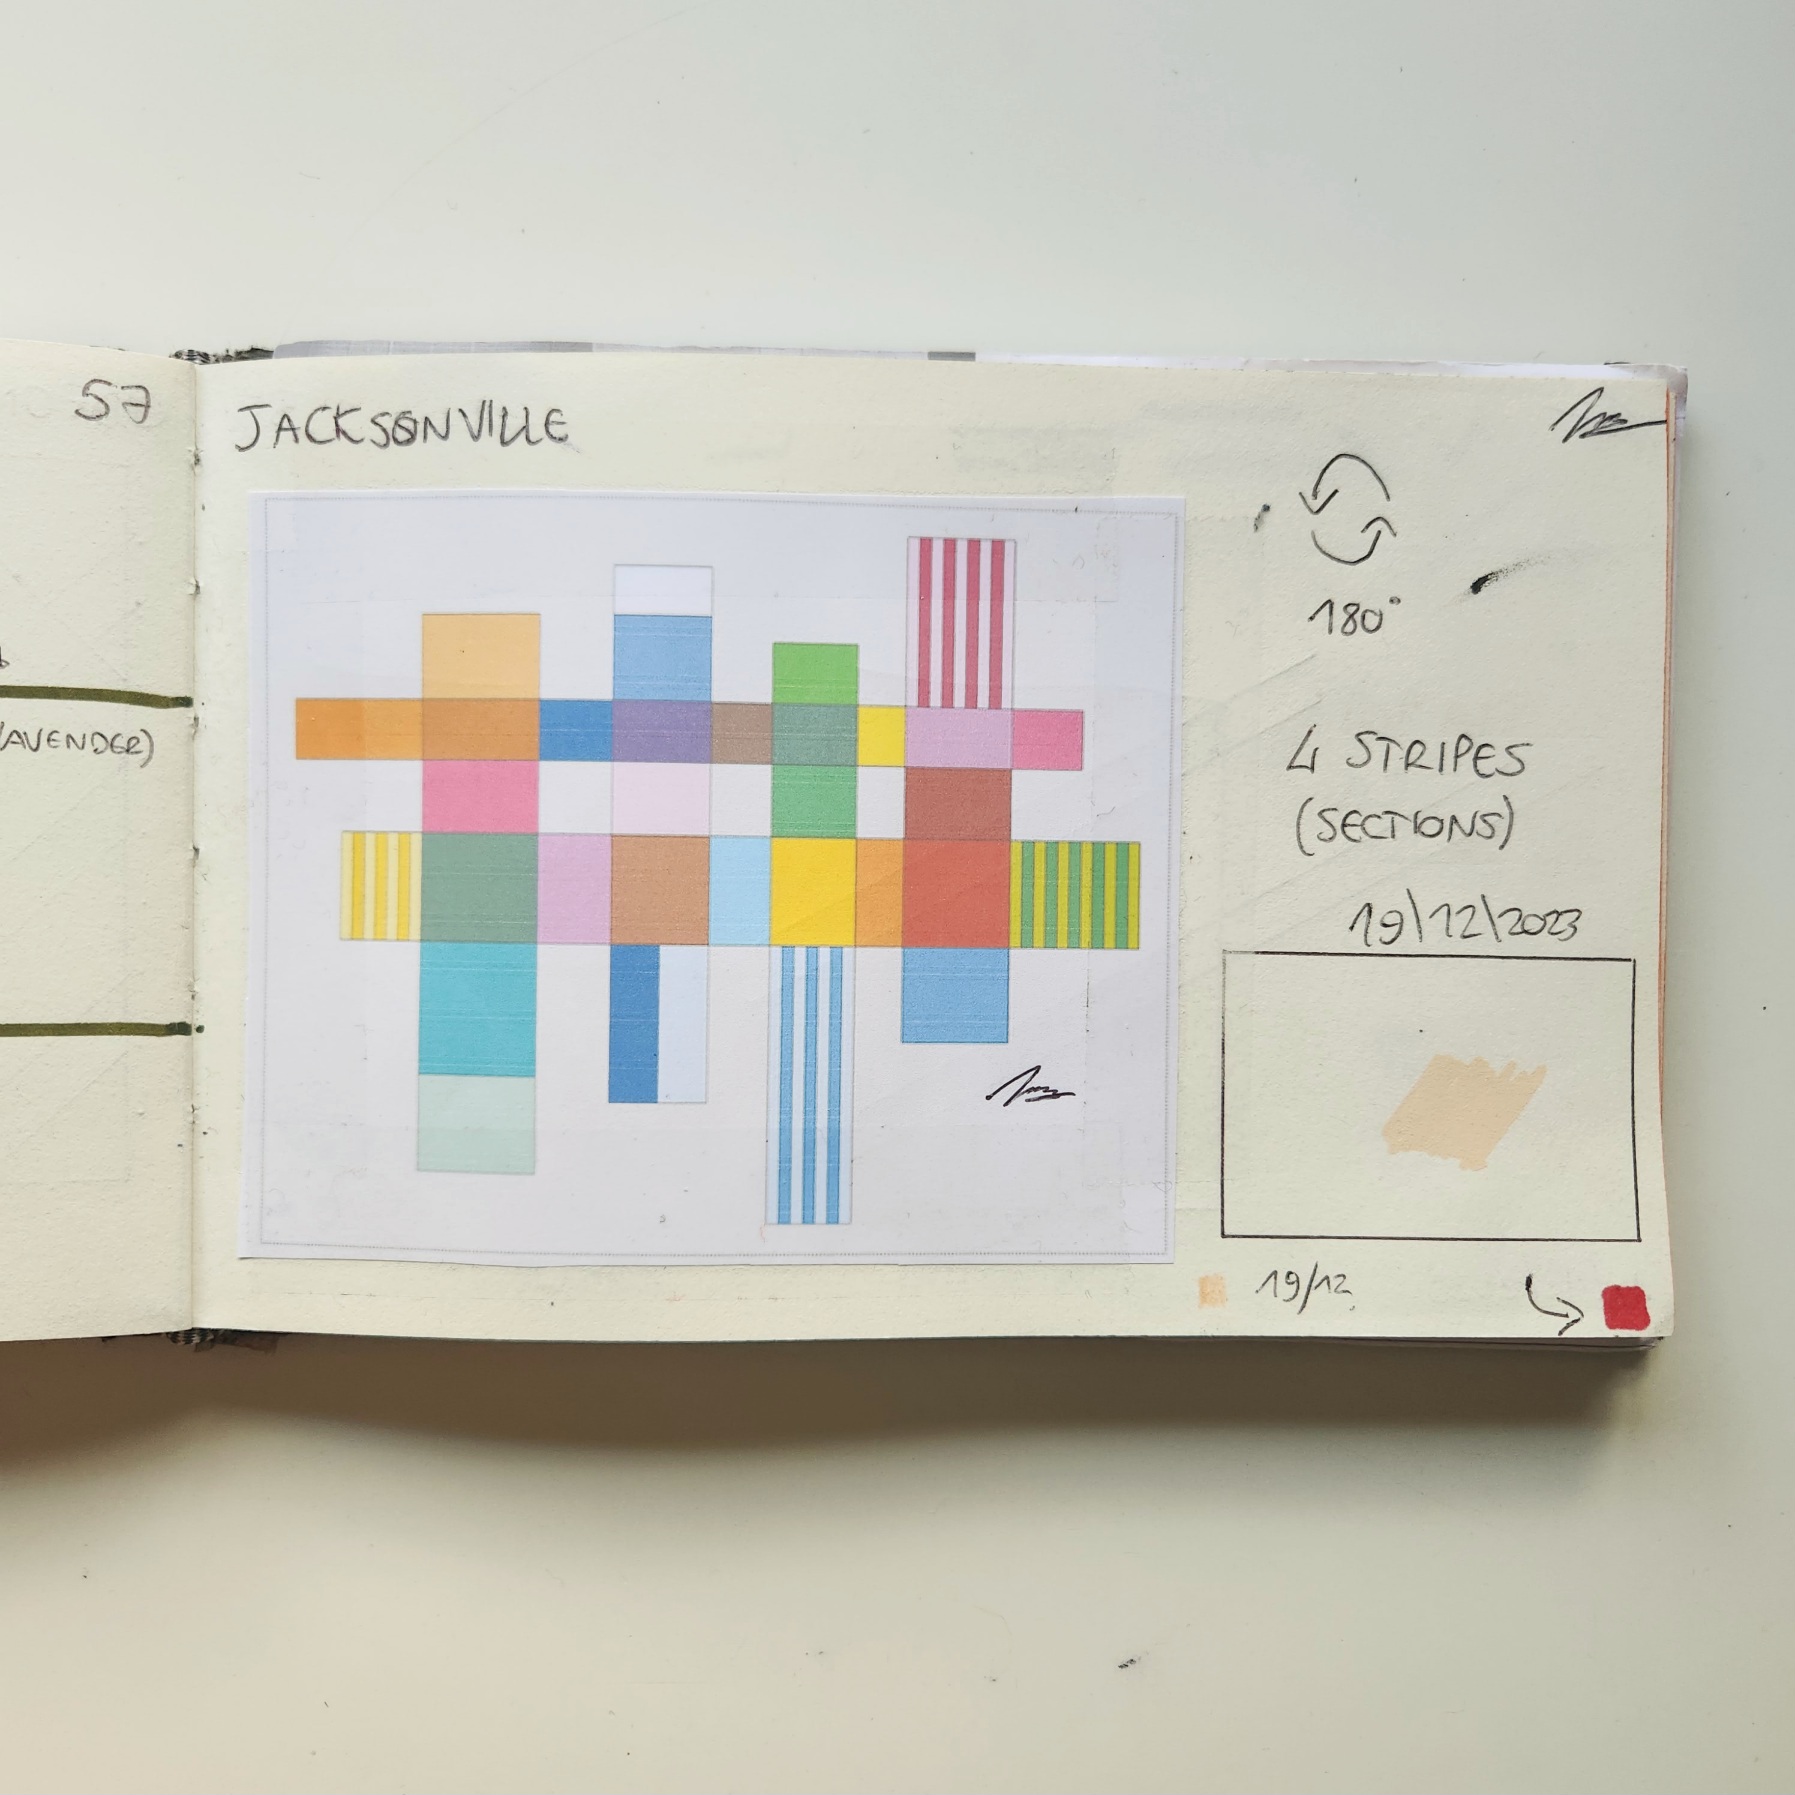 57
(LAVENDER)
JACKSONVILLE
180°
4 STRIPES
(SECTIONS)
19\12\2023
19/12